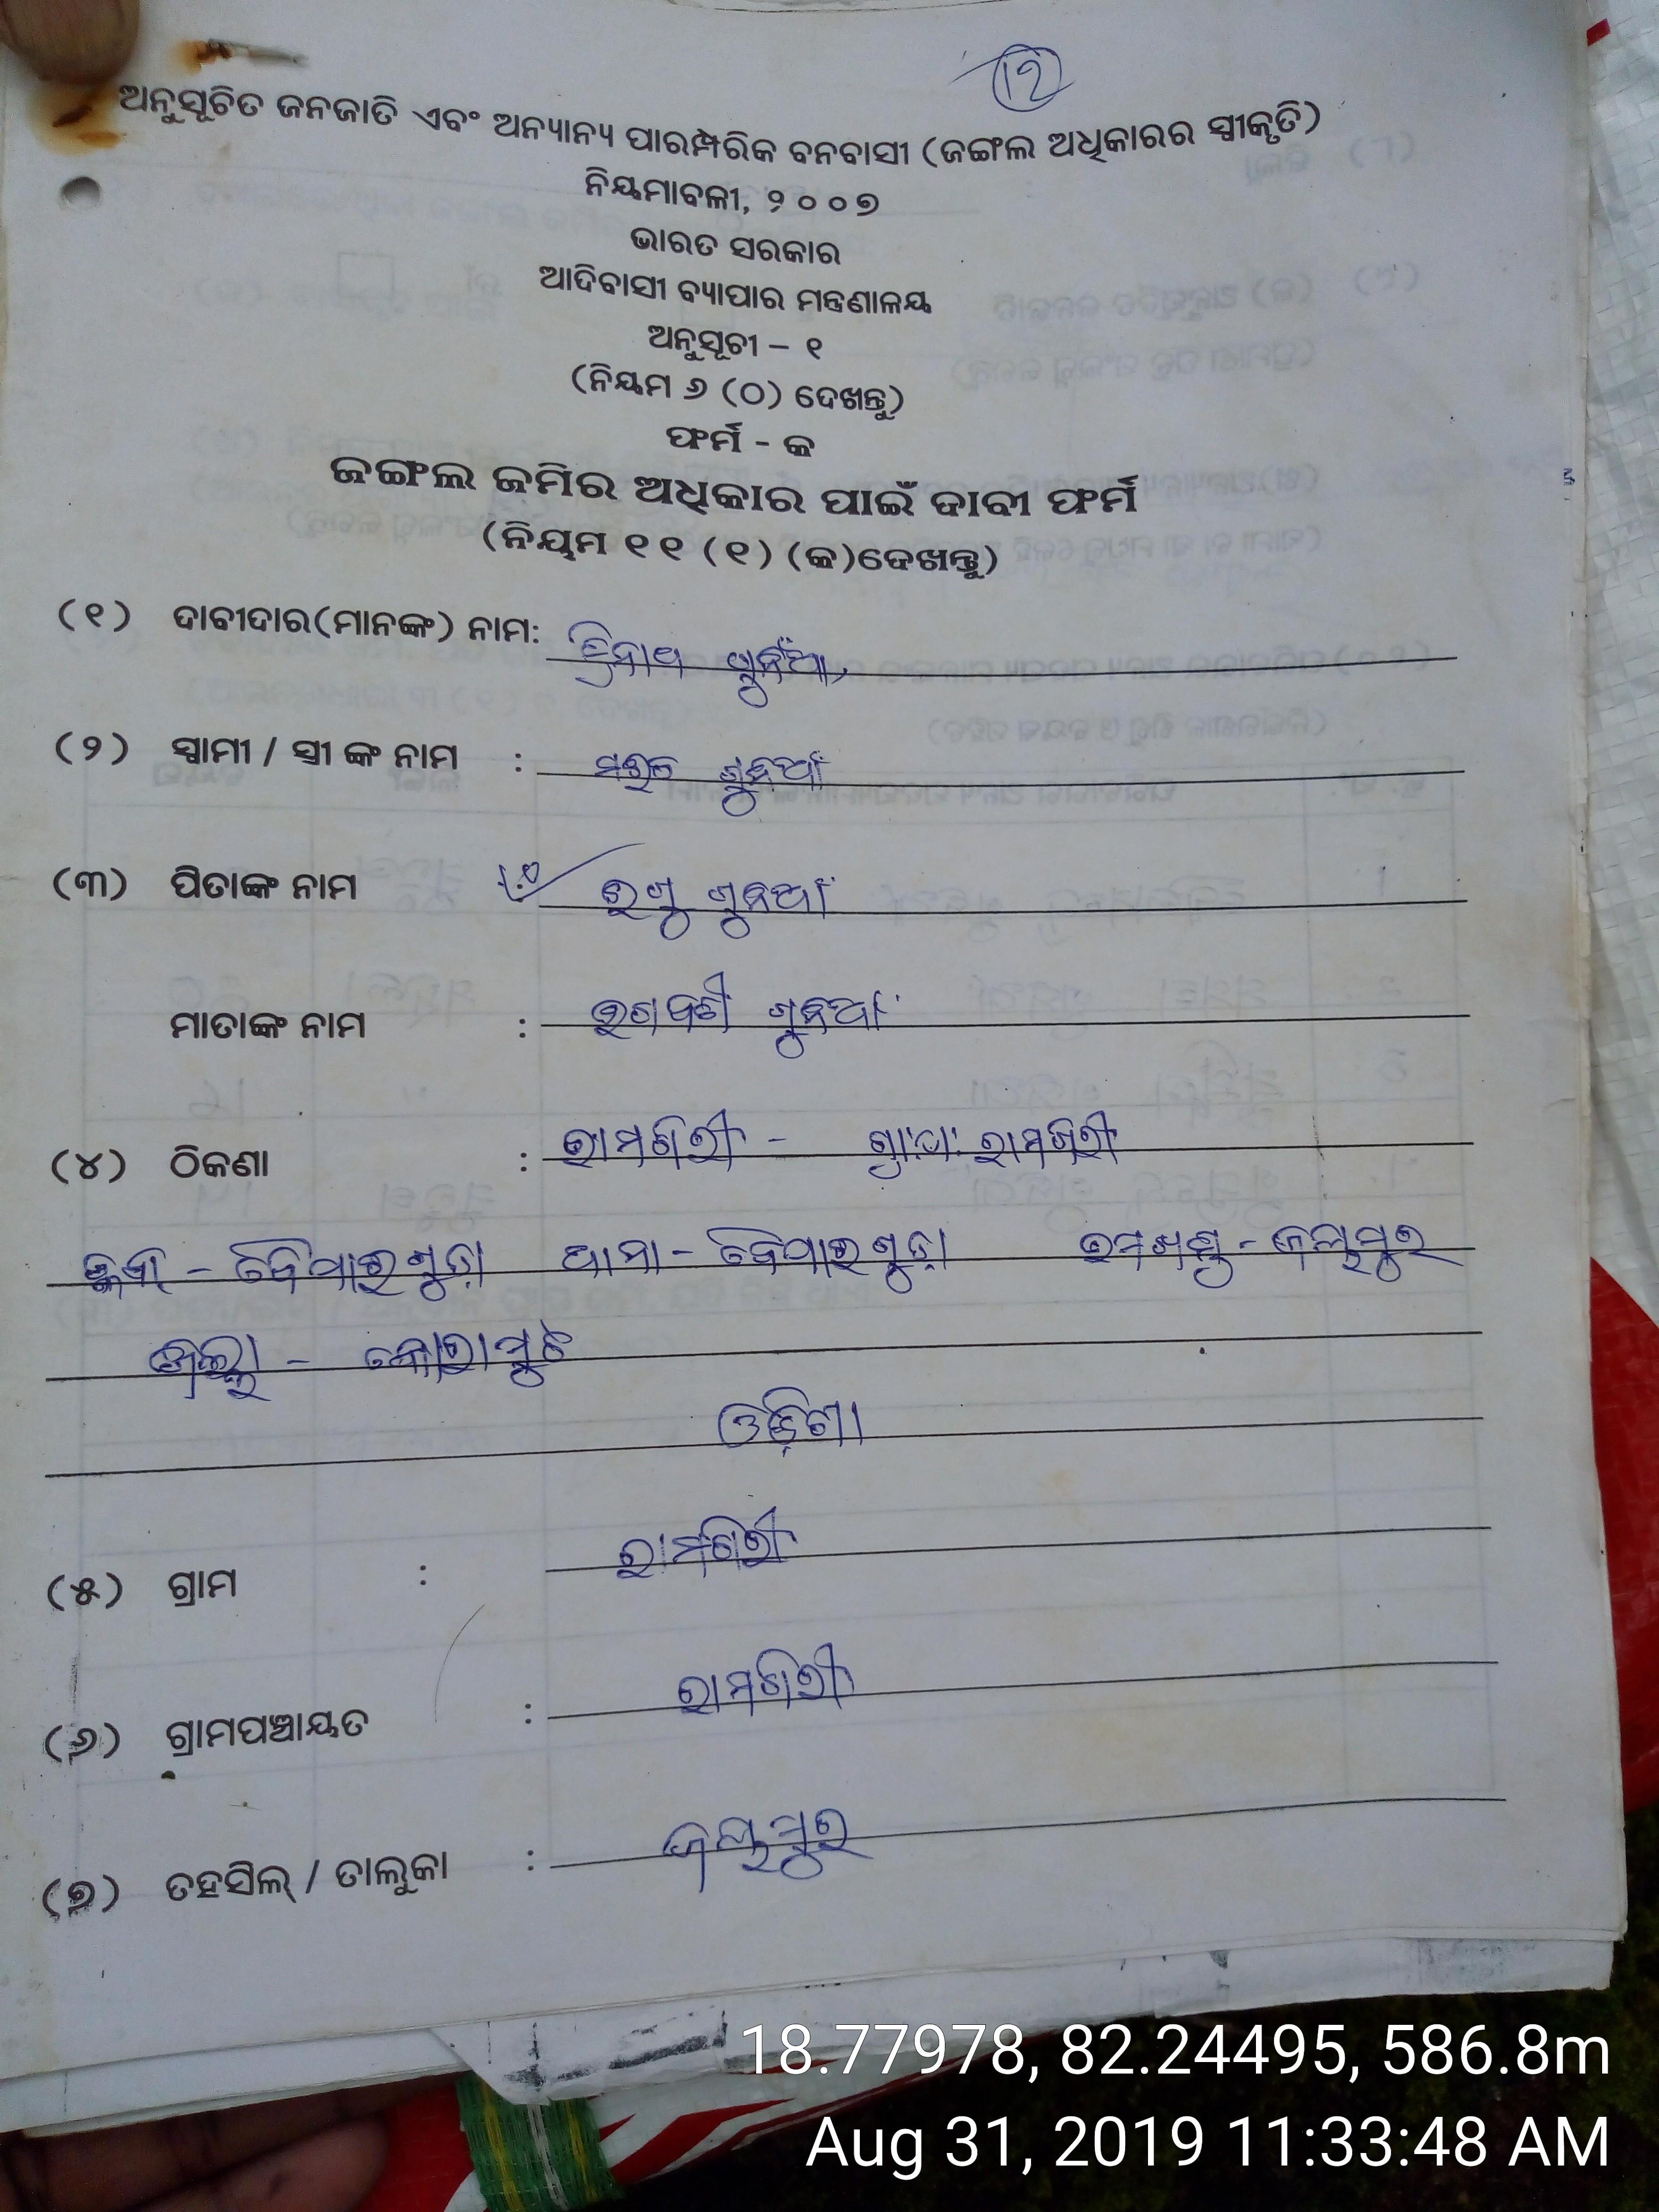 ୧୨
ଅନୁସୂଚିତ ଜନଜାତି ଏବଂ ଅନ୍ୟାନ୍ୟ ପାରମ୍ପରିକ ବନବାସୀ (ଜଙ୍ଗଲ ଅଧିକାରର ସ୍ୱୀକୃତି)
ନିୟମାବଳୀ, ୨୦୦୭
ଭାରତ ସରକାର
ଆଦିବାସୀ ବ୍ୟାପାର ମନ୍ତ୍ରଣାଳୟ
ଅନୁସୂଚୀ – ୧
(ନିୟମ ୬ (ଠ) ଦେଖନ୍ତୁ)
ଫର୍ମ - କ
ଜଙ୍ଗଲ ଜମିର ଅଧିକାର ପାଇଁ ଦାବୀ ଫର୍ମ
(ନିୟମ ୧୧ (୧) (କ)ଦେଖନ୍ତୁ)
(୧) ଦାବୀଦାର(ମାନଙ୍କ) ନାମ: ତ୍ରିନାଥ
(୨) ସ୍ୱାମୀ / ସ୍ତ୍ରୀ ଙ୍କ ନାମ :
(୩) ପିତାଙ୍କ ନାମ :
ମାତାଙ୍କ ନାମ :
(୪) ଠିକଣା : ରାମଗିରୀ - ଗ୍ରା:ପଂ: ରାମଗିରୀ
ବ୍ଲକ - ବୈପାରୀଗୁଡ଼ା ଥାନା - ବୈପାରୀଗୁଡ଼ା - ଜୟପୁର
ଜିଲ୍ଲା - କୋରାପୁଟ
ଓଡ଼ିଶା
(୫) ଗ୍ରାମ : ରାମଗିରୀ
(୬) ଗ୍ରାମପଞ୍ଚାୟତ : ରାମଗିରୀ
(୭) ତହସିଲ୍ / ତାଲୁକା : ଜୟପୁର
18.77978, 82.24495, 586.8m
Aug 31, 2019 11:33:48 AM